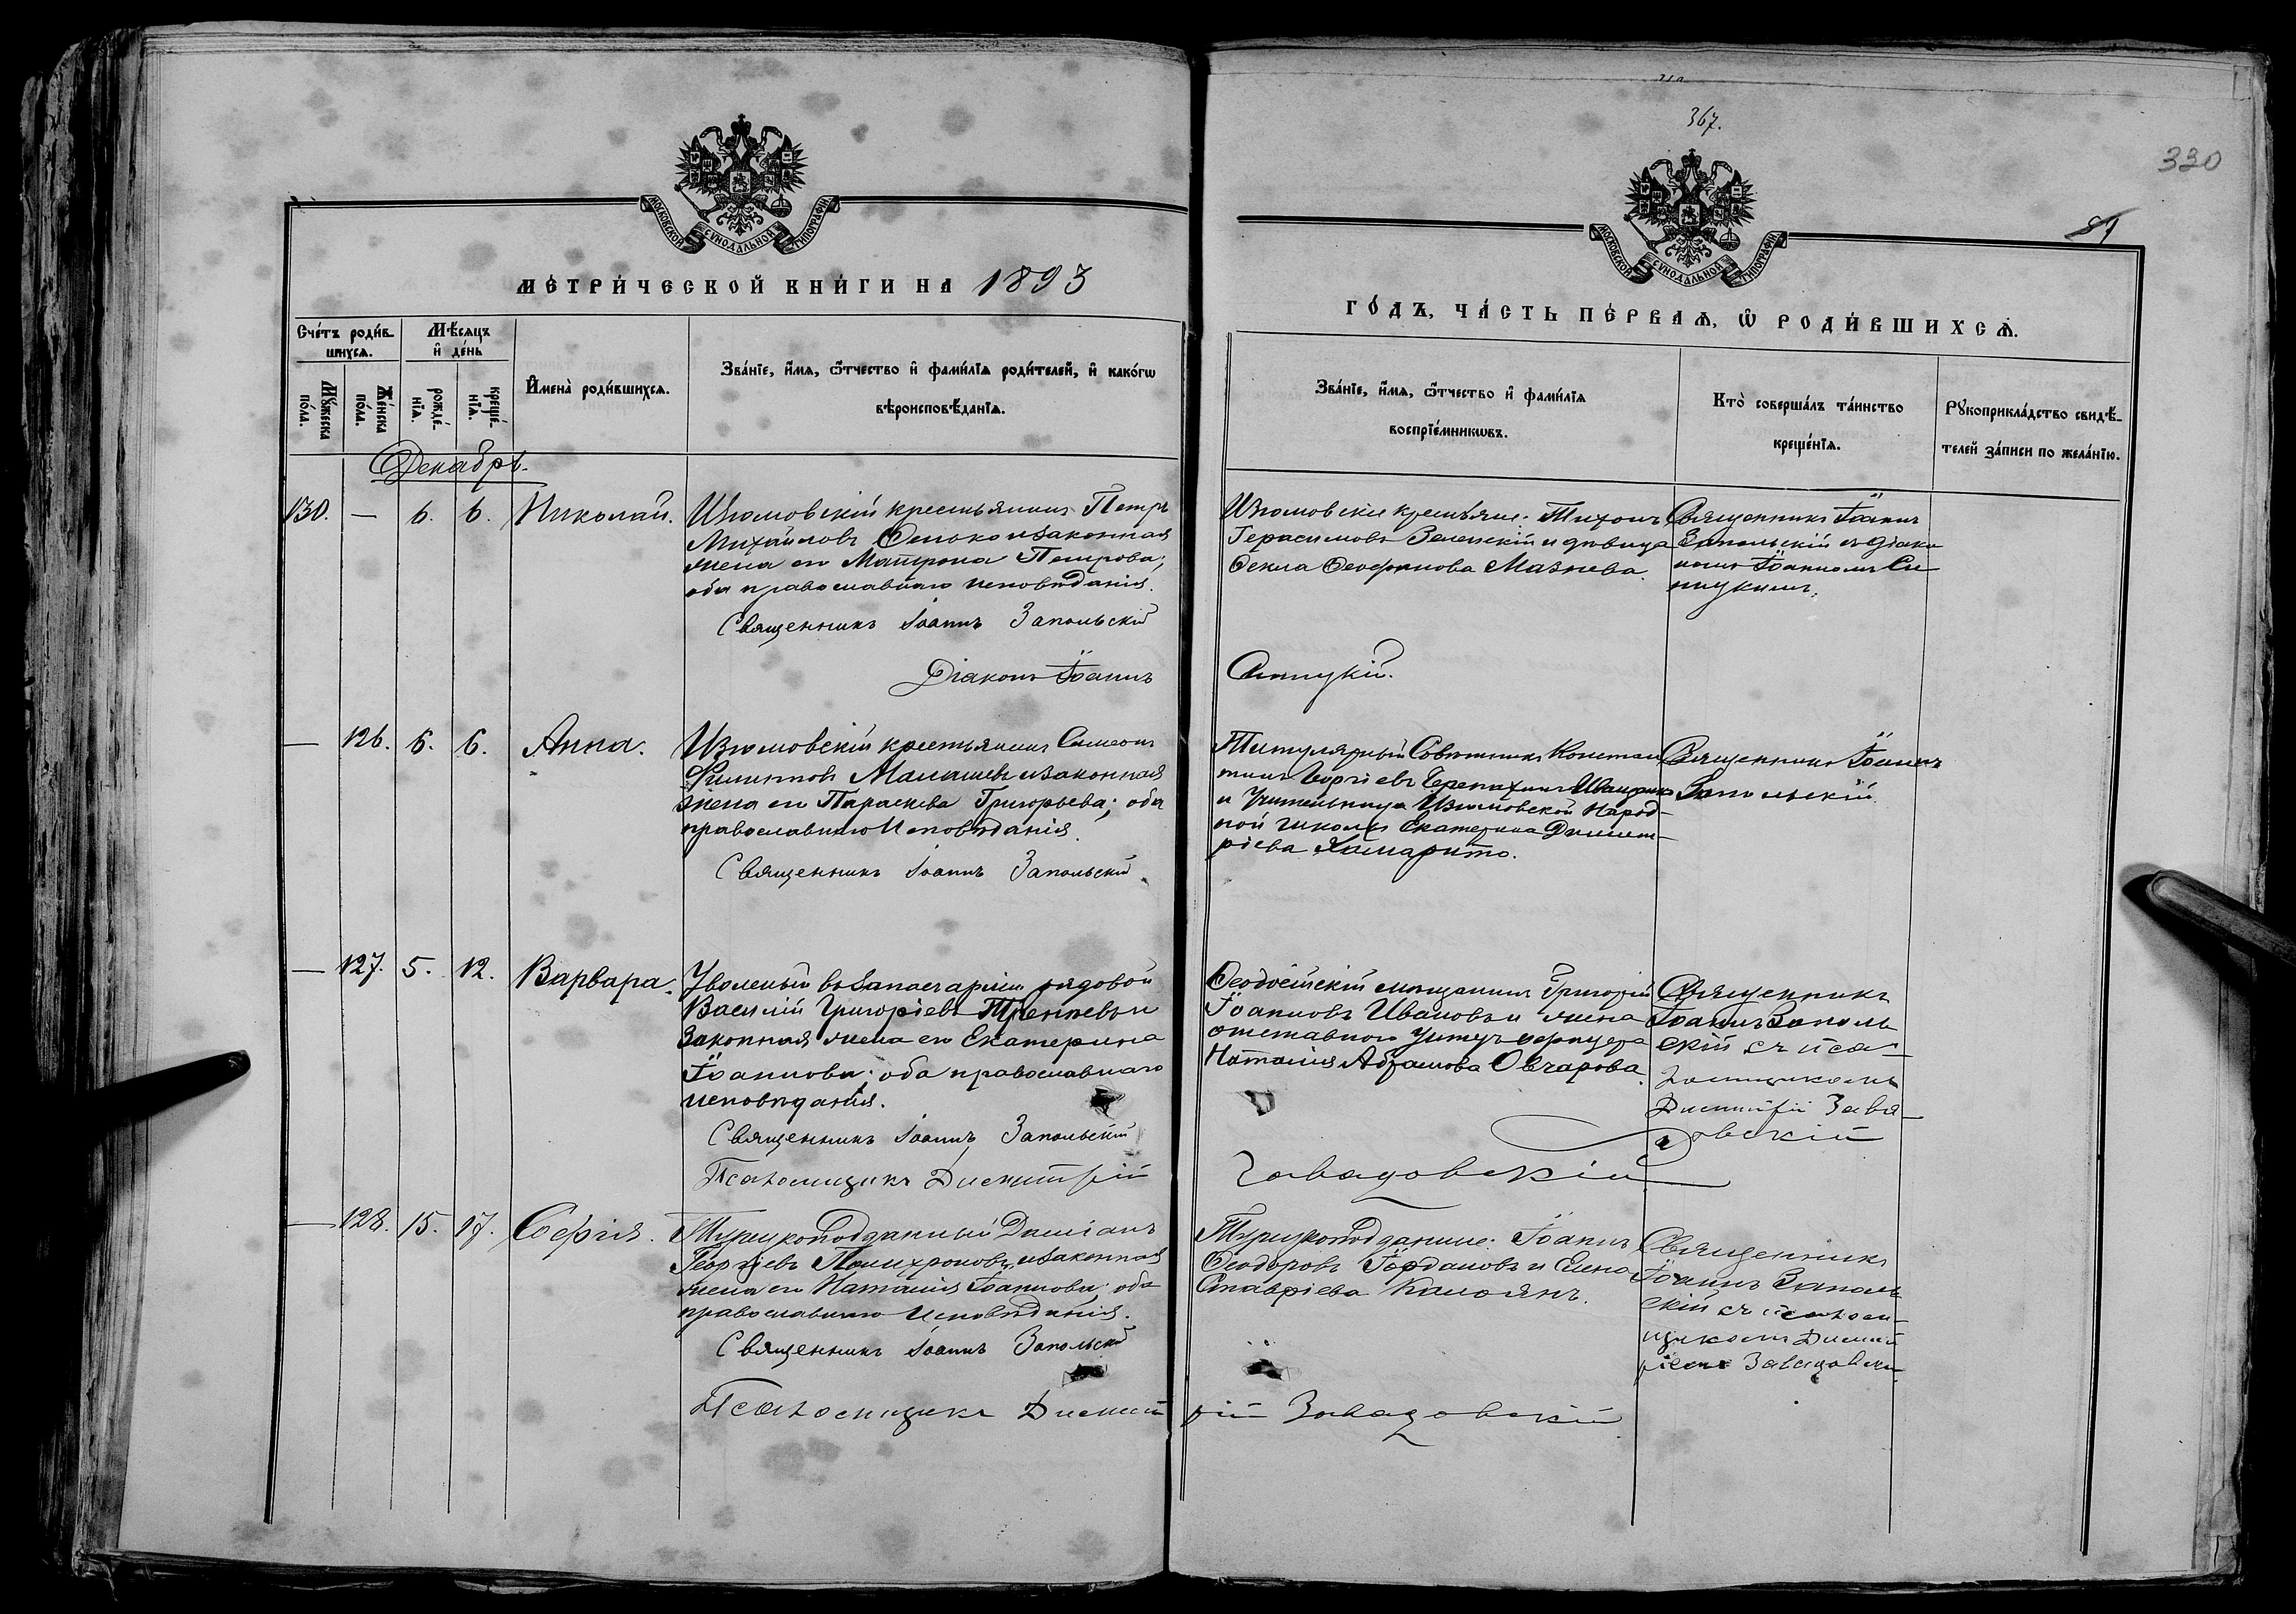 367.
330
81
МОСКОВСКОЙ СѴНОДАЛЬНОЙ ТИПОГРАФІИ
МОСКОВСКОЙ СѴНОДАЛЬНОЙ ТИПОГРАФІИ
МЕТРИ́ЧЕСКОЙ КНИ́ГИ НА 1893
ГО́ДЪ, ЧА́СТЬ ПЕ́РВАѦ, Ѽ РОДИ́ВШИХСѦ.
Сче́тъ роди́в-
шихсѧ.
Мꙋ́жеска
по́ла.
Же́нска
по́ла.
Мѣ́сѧцъ
и҆ де́нь
рожде́-
нїѧ.
креще́-
нїѧ.
И҆мена̀ роди́вшихсѧ.
Зва́нїе, и҆́мѧ, ѻ҆́тчество и҆ фами́лїѧ роди́телей, и҆ како́гѡ
вѣроисповѣ́данїѧ.
Зва́нїе, и҆́мѧ, ѻ҆́тчество и҆ фами́лїѧ
воспрїе́мникѡвъ.
Кто̀ соверша́лъ та́инство
креще́нїѧ.
Рꙋкоприкла́дство свидѣ́-
телей за́писи по жела́нїю.
Декабрь.
130. — 6. 6. Николай.
Изюмовскій крестьянинъ Петръ
Михайловъ и законная
жена его Матрона Петрова;
оба православнаго исповѣданія.
Священникъ Іоаннъ Запольскій
Діаконъ Іоаннъ
Изюмовскіе крестьяне: Тихонъ
Герасимовъ Зеленскій и дѣвица
Ѳекла Ѳеофанова Мазнева.
Синицкій.
Священникъ Іоаннъ
Запольскій съ діако
номъ Іоанномъ Си
ницкимъ.
— 126. 6. 6. Анна.
Изюмовскій крестьянинъ Симеонъ
Филиповъ Малашевъ и законная
жена его Параскева Григорьева; оба
православнаго исповѣданія.
Священникъ Іоаннъ Запольскій.
Титулярный Совѣтникъ Констан
тинъ
и Учительница Изюмовской Народ-
ной школы Екатерина Димит-
ріева
Священникъ Іоаннъ
Запольскій.
— 127. 5. 12. Варвара.
Уволеный въ запасъ арміи рядовой
Василій Григоріевъ и
Законная жена его Екатерина
Іоаннова; оба православнаго
исповѣданія.
Священникъ Іоаннъ Запольскій
Псаломщикъ Димитрій
Ѳеодосійскій мѣщанинъ Григорій
Іоанновъ Ивановъ и жена
отставного унтеръ офицера
Наталія Абрамова Овчарова.
Завадовскій
Священникъ
Іоаннъ Заполь
скій съ пса-
ломщикомъ
Димитрій Зава-
довскій
— 128. 15. 17. Софія.
Турецкоподданный Даміанъ
Георгіевъ Полихроновъ и законная
жена его Наталія Іоаннова; оба
православнаго исповѣданія.
Священникъ Іоаннъ Запольскій
Псаломщикъ Димит
Турецкоподданные: Іоаннъ
Ѳеодоровъ Іордановъ и Елена
Ставріева Калоянъ.
рій Завадовскій
Священникъ
Іоаннъ Заполь
скій съ псалом-
щикомъ Димит
ріемъ Завадовски